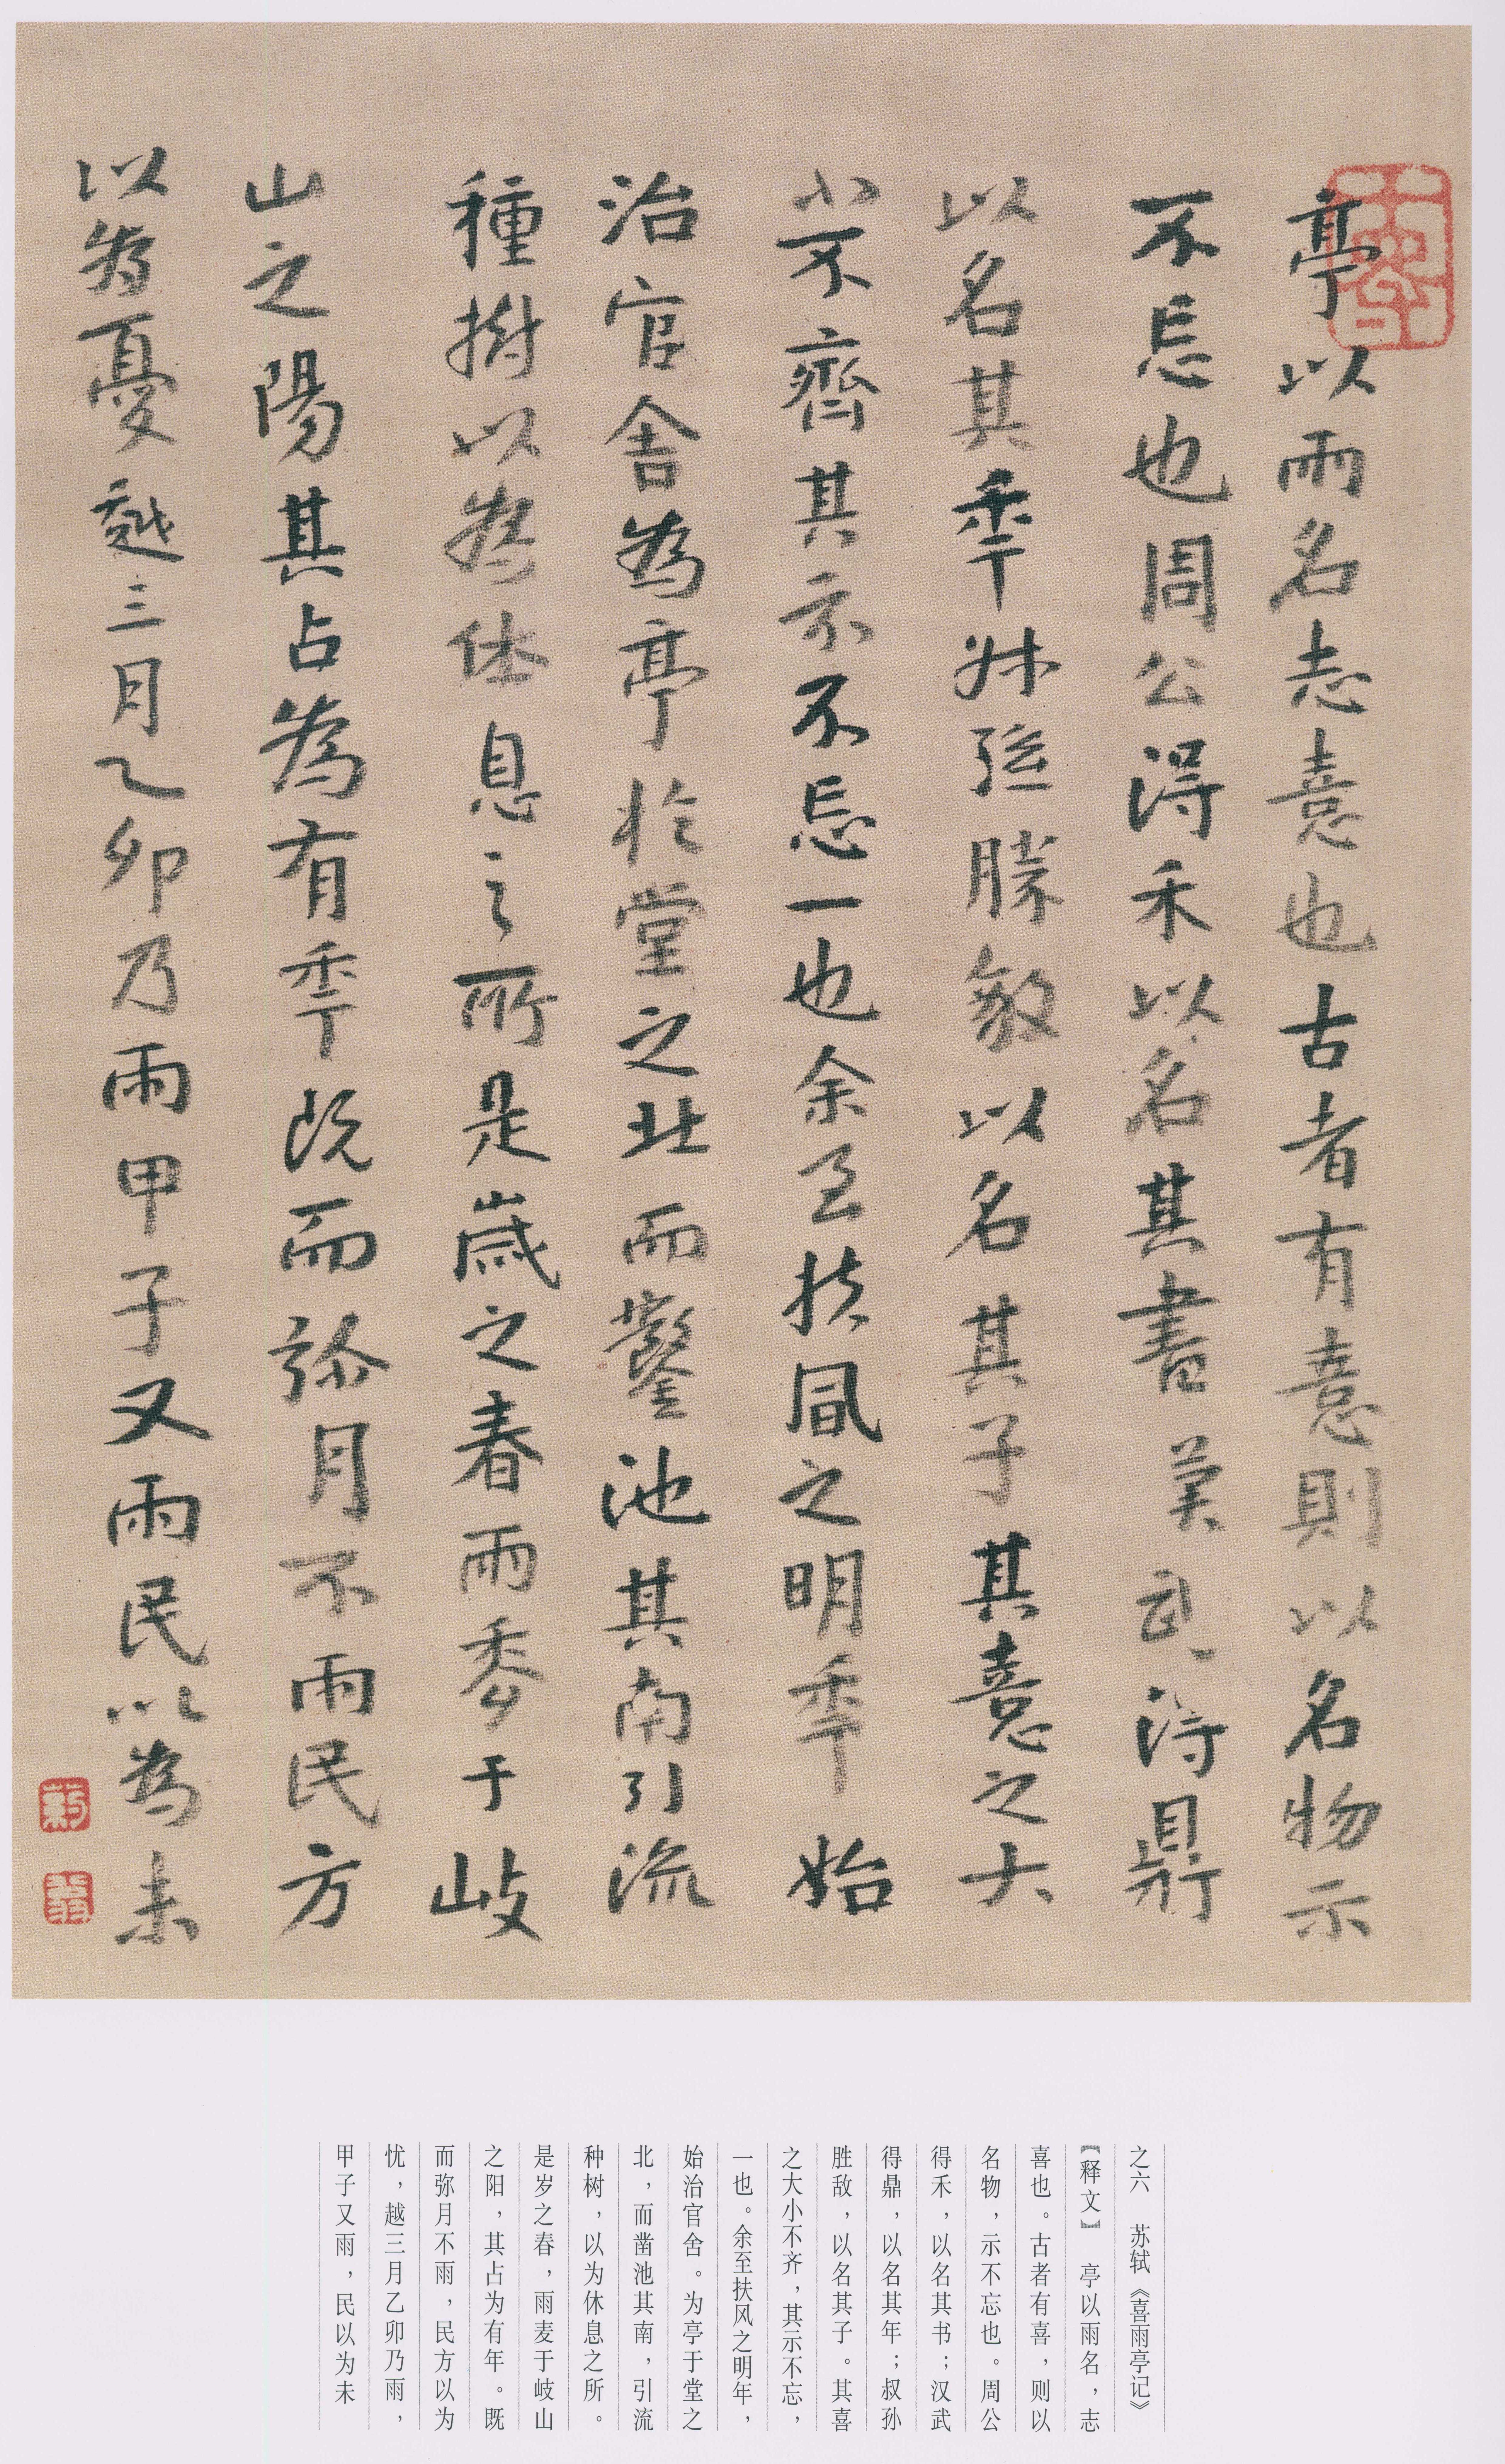 亭以雨名志憙也古者有憙則以名物示
不忘也周公得禾以名其書漢武得鼎
以名其年叔孫勝敵以名其子其憙之大
小不齊其示不忘一也余至扶風之明年始
治官舍為亭於堂之北而鑿池其南引流
種樹以為休息之所是歲之春雨麥于岐
山之陽其占為有年既而彌月不雨民方
以為憂越三月乙卯乃雨甲子又雨民以為未
之六 苏轼《喜雨亭记》
【释文】 亭以雨名，志
喜也。古者有喜，则以
名物，示不忘也。周公
得禾，以名其书；汉武
得鼎，以名其年；叔孙
胜敌，以名其子。其喜
之大小不齐，其示不忘，
一也。余至扶风之明年，
始治官舍。为亭于堂之
北，而凿池其南，引流
种树，以为休息之所。
是岁之春，雨麦于岐山
之阳，其占为有年。既
而弥月不雨，民方以为
忧，越三月乙卯乃雨，
甲子又雨，民以为未